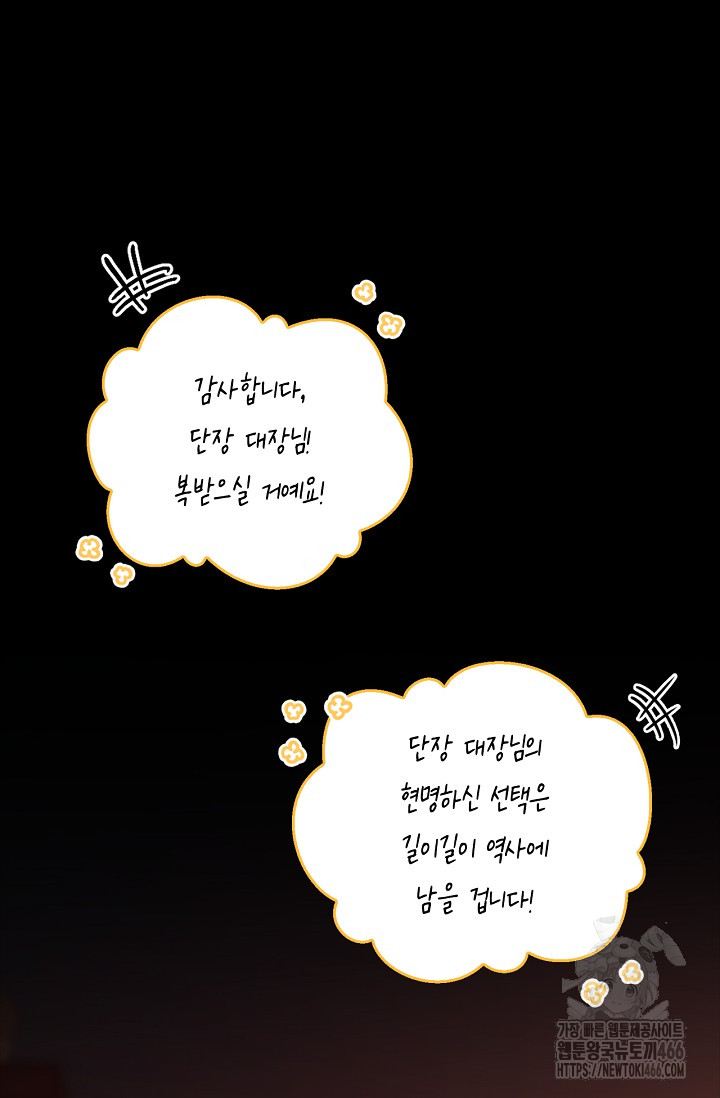 감사합니다,
단장 대장님!
복받으실 거예요!
단장 대장님의
현명하신 선택은
길이길이 역사에
남을 겁니다!
가장 빠른 웹툰제공사이트
웹툰왕국뉴토끼466
HTTPS://NEWTOKI466.COM